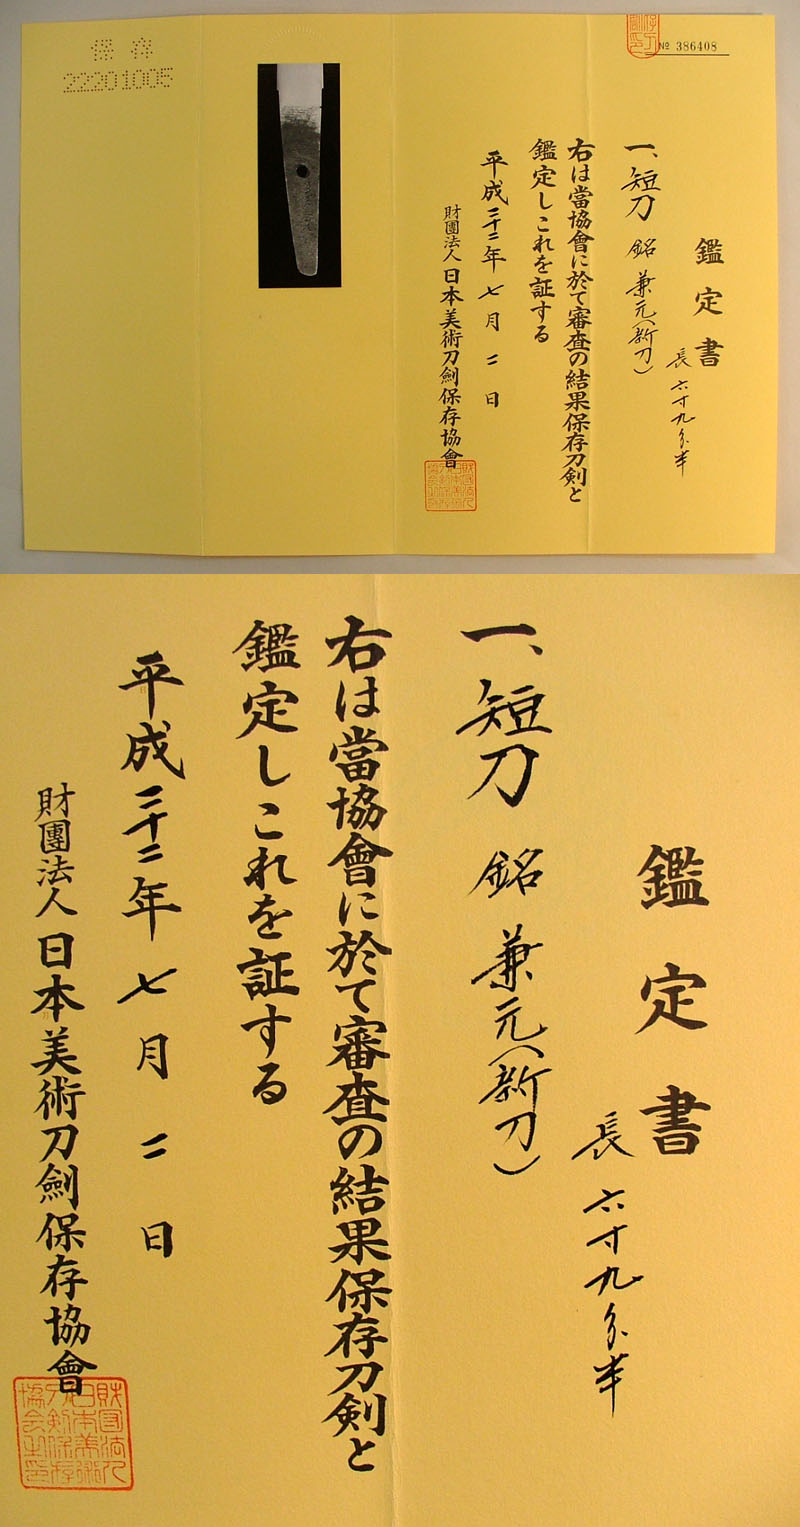 № 386408
鑑定書
長 六寸九分半
一、短刀 銘 兼元(新刀)
右は當協會に於て審査の結果保存刀剣と
鑑定しこれを証する
平成二十二年七月二日
財團法人日本美術刀劍保存協會
保存
22201005
鑑定書
長 六寸九分半
一、短刀 銘 兼元(新刀)
右は當協會に於て審査の結果保存刀剣と
鑑定しこれを証する
平成二十二年七月二日
財團法人日本美術刀劍保存協會